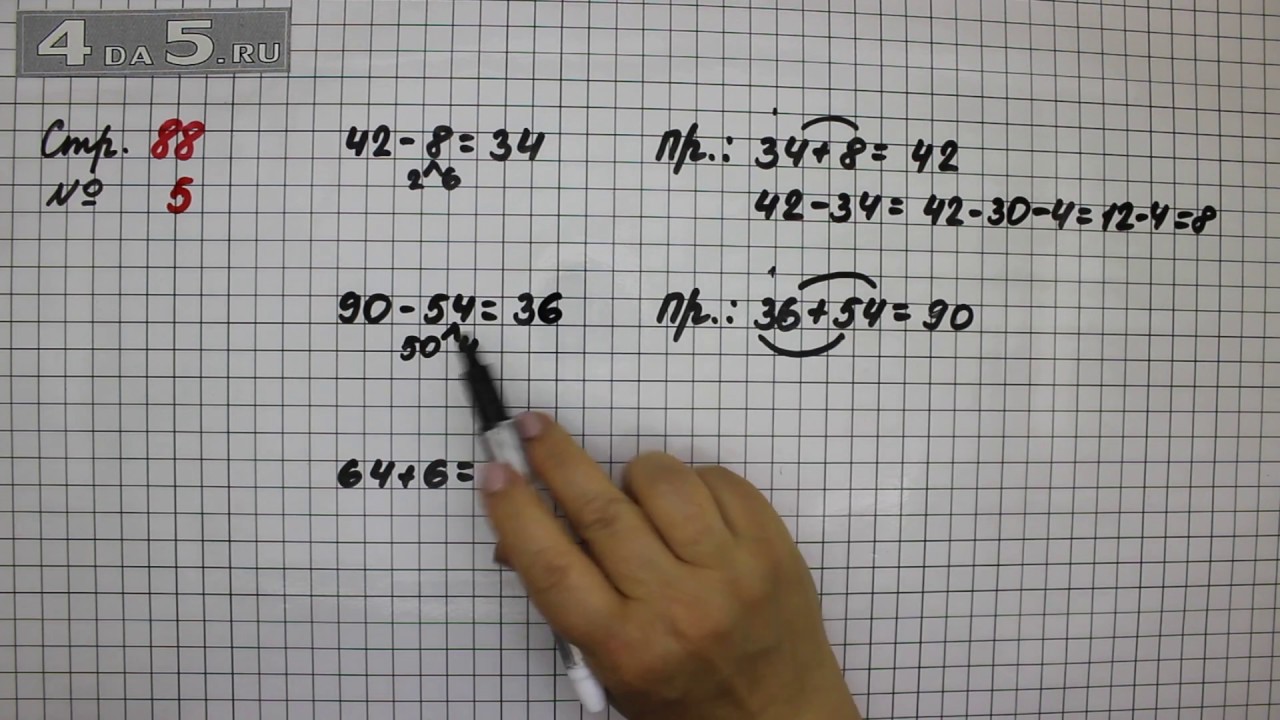 4DA5.RU
Стр. 88
№ 5
42-8=34
2 6
Пр.: 34+8=42
42-34=42-30-4=12-4=8
90-54=36
50 4
Пр.: 36+54=90
64+6=